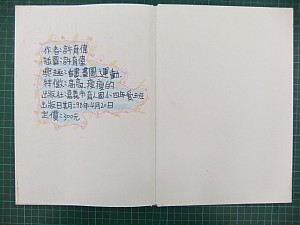 作者:許育偉
插圖:許育偉
興趣:看書、畫圖、運動
特徵:高高、瘦瘦的
出版社:嘉義市育人國小四年愛班
出版日期:98年4月20日
定價:300元